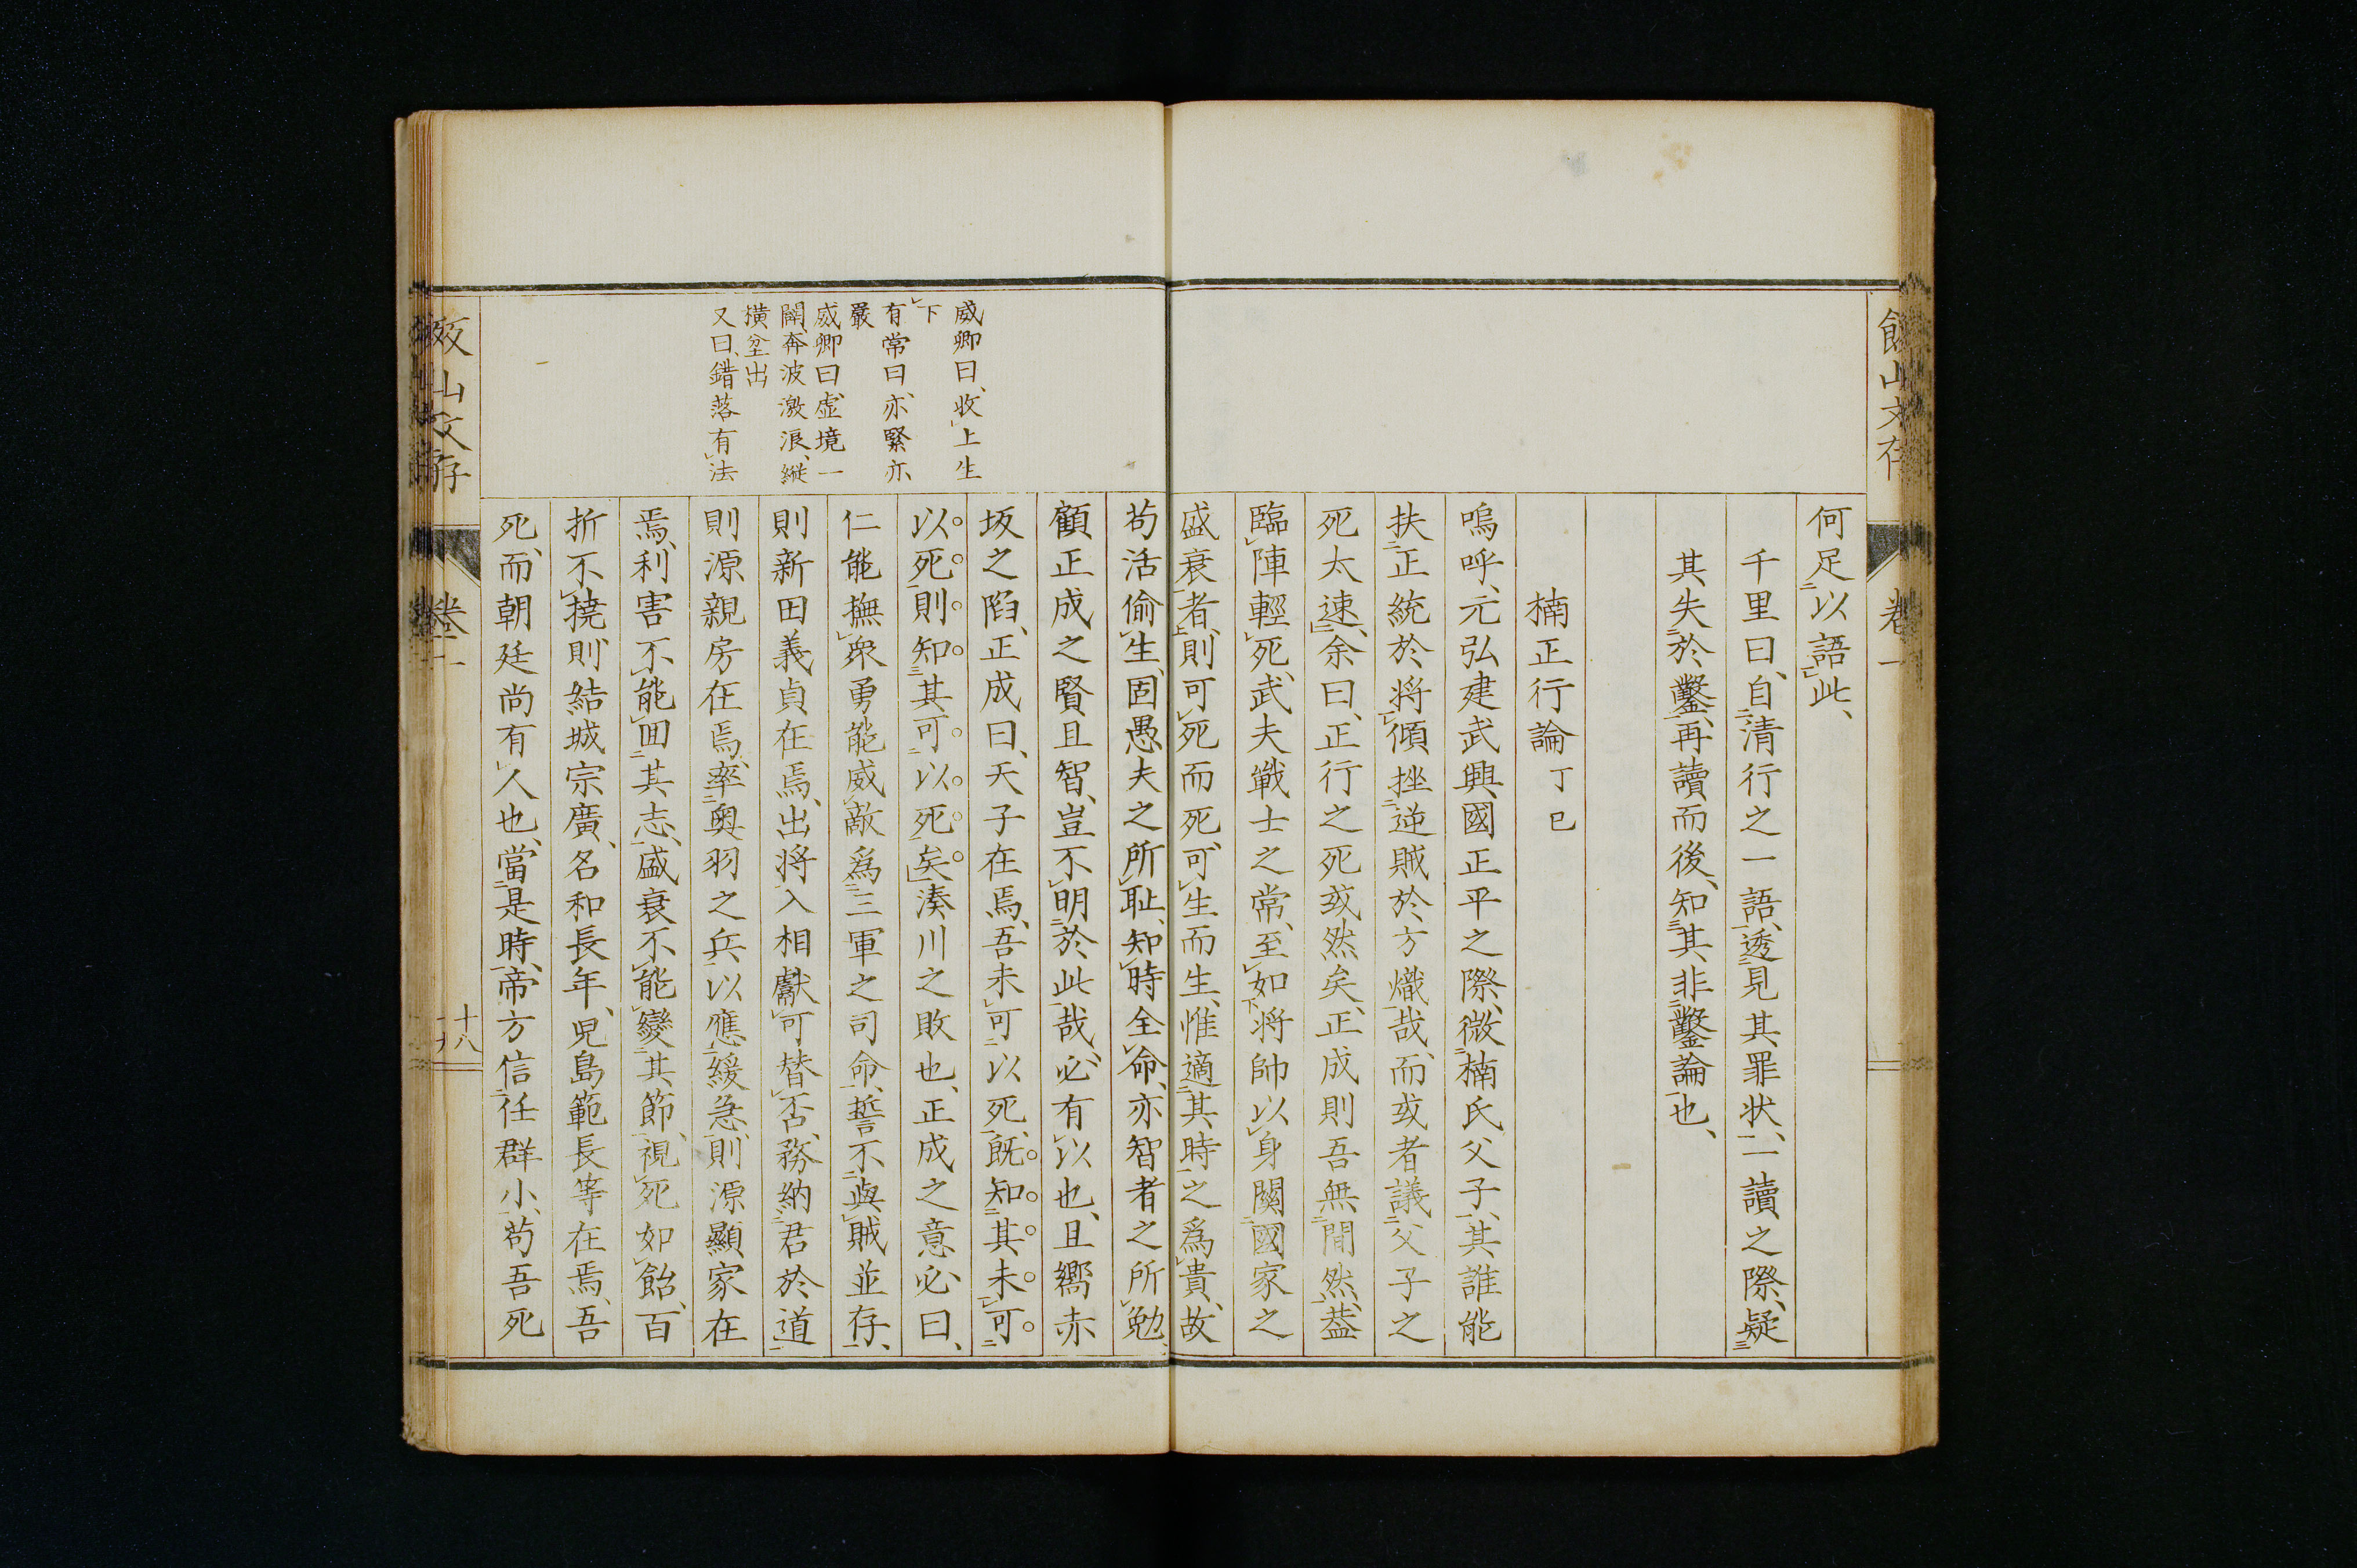 何足以語此、
千里曰、自清行之一語、透見其罪状、一讀之際、疑
其失於鑿、再讀而後、知其非鑿論也、
楠正行論 丁巳
嗚呼、元弘建武興國正平之際、微楠氏父子、其誰能
扶正統於将傾、挫逆賊於方熾哉、而或者議父子之
死太速、余曰、正行之死或然矣、正成則吾無間然、葢
臨陣輕死、武夫戦士之常、至如将帥以身關國家之
盛衰者、則可死而死、可生而生、惟適其時之爲貴、故
苟活偷生、固愚夫之所耻、知時全命、亦智者之所勉、
顧正成之賢且智、豈不明於此哉、必有以也、且嚮赤
坂之陷、正成曰、天子在焉、吾未可以死、既知其未可
以死、則知其可以死矣、湊川之敗也、正成之意必曰、
仁能撫衆勇能威敵爲三軍之司命、誓不與賊並存、
則新田義貞在焉、出将入相獻可替否、務納君於道
則源親房在焉、率奥羽之兵以應緩急、則源顯家在
焉、利害不能囬其志、盛衰不能變其節、視死如飴、百
折不撓則結城宗廣、名和長年、児島範長等在焉、吾
死、而朝廷尚有人也、當是時、帝方信任群小、苟吾死
威卿曰、收上生
下
有常曰、亦緊亦
嚴
威卿曰、虚境一
闢、奔波激浪、縦
横坌出
又曰、錯落有法
山文存
卷一
十八